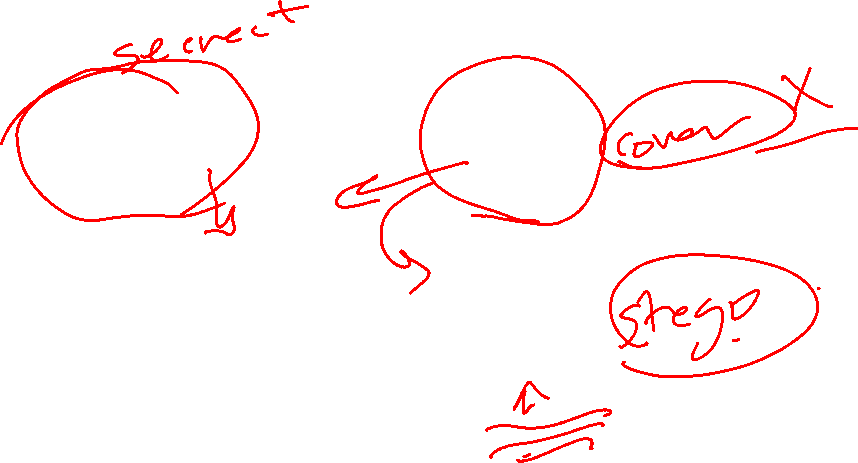 secrect
cover
stego